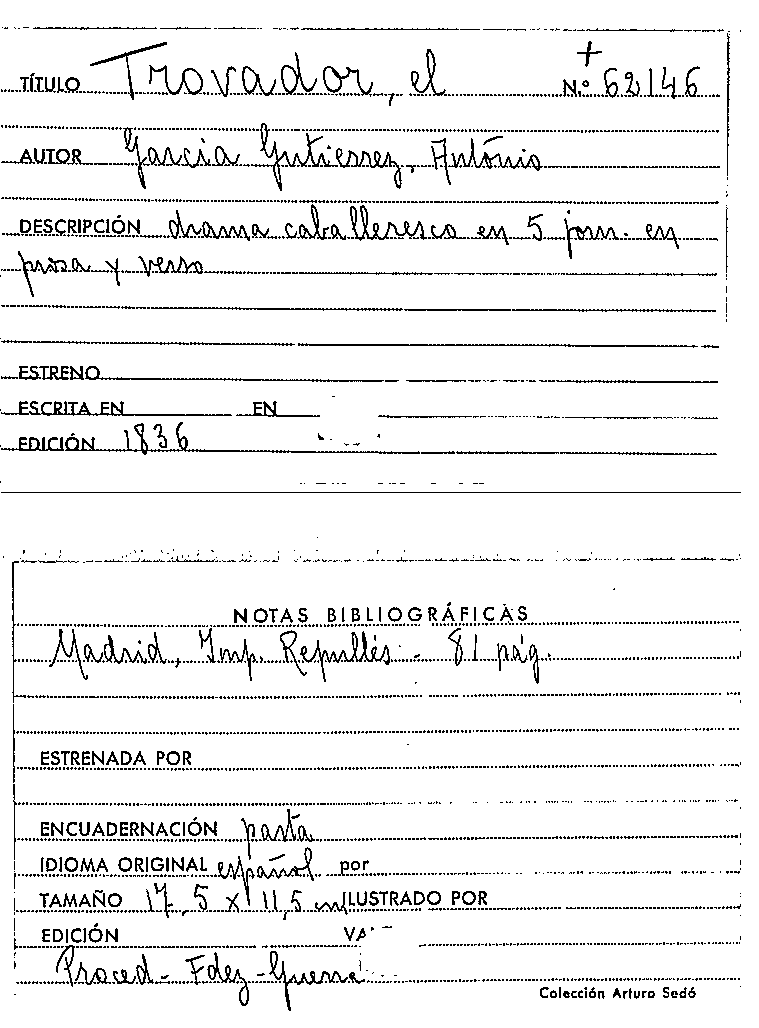 TÍTULO Trovador, el N.º + 62146
AUTOR García Gutiérrez, António
DESCRIPCIÓN drama caballeresco en 5 jorn. en
prosa y verso
ESTRENO
ESCRITA EN EN
EDICIÓN 1836
NOTAS BIBLIOGRÁFICAS
Madrid, Imp. Repullés - 81 pág.
ESTRENADA POR
ENCUADERNACIÓN pasta
IDIOMA ORIGINAL español por
TAMAÑO 17,5 x 11,5 cm ILUSTRADO POR
EDICIÓN VA
Proced - Fdez - Guerra
Colección Arturo Sedó